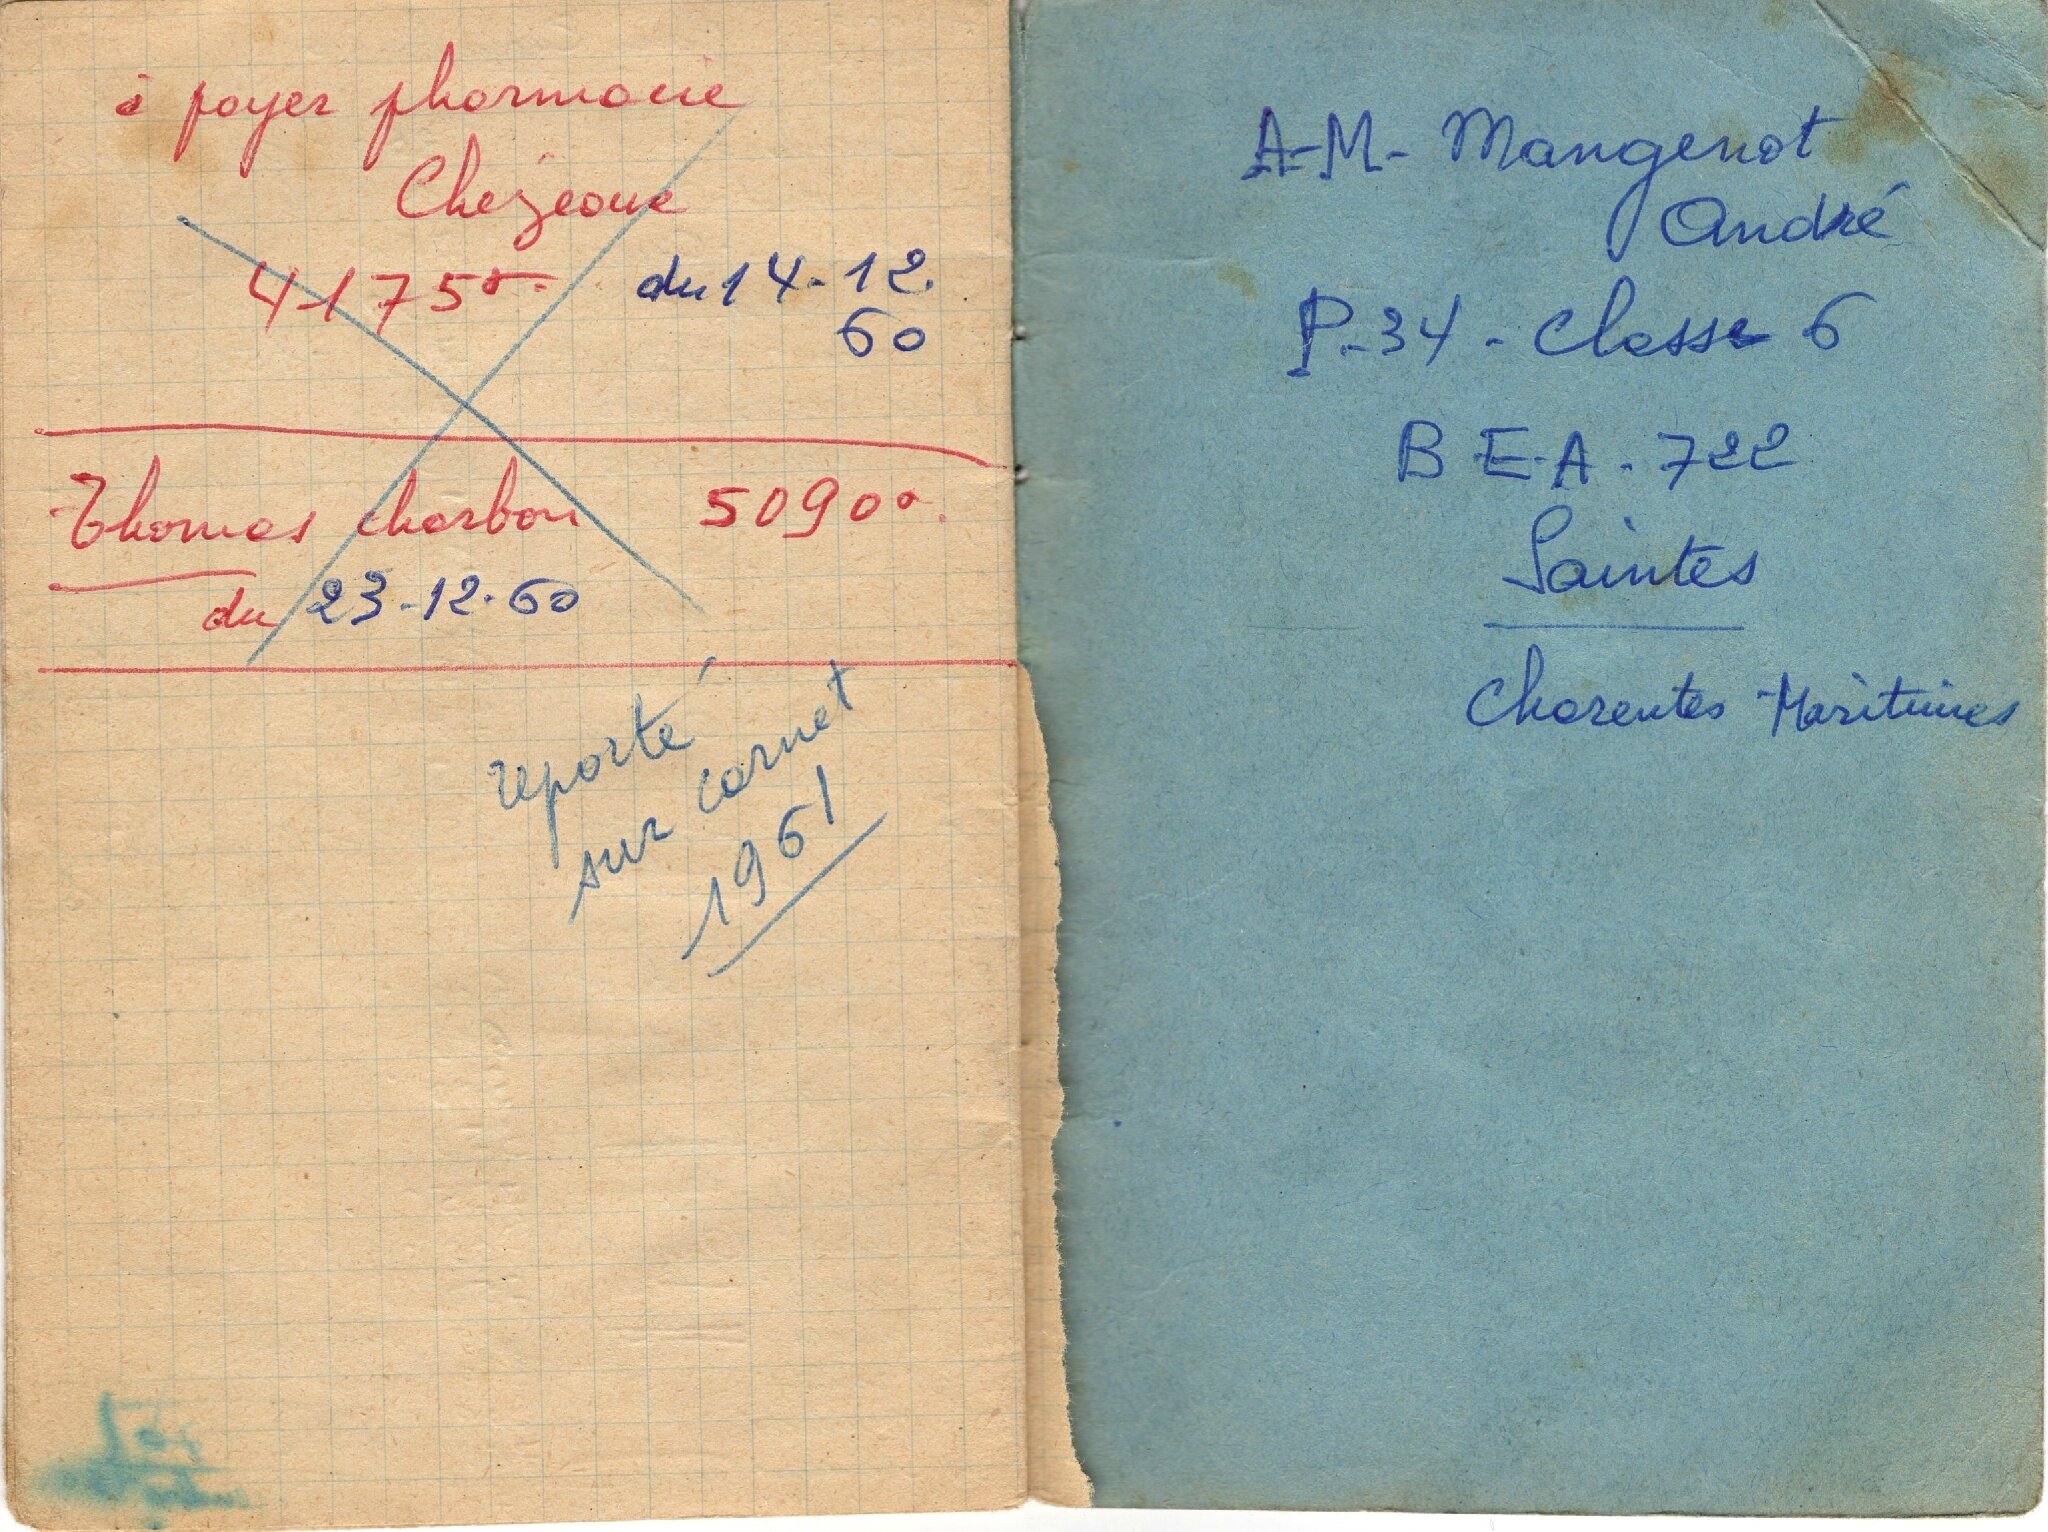 à payer pharmacie
Chezeaue
41750 du 14-12.
60
Thomas charbon 50900.
du 23-12-60
reporté
sur carnet
1961
A-M- Mangenot
André
P-34 - Classe 6
B.E.A. 722
Saintes
Charentes-Maritimes